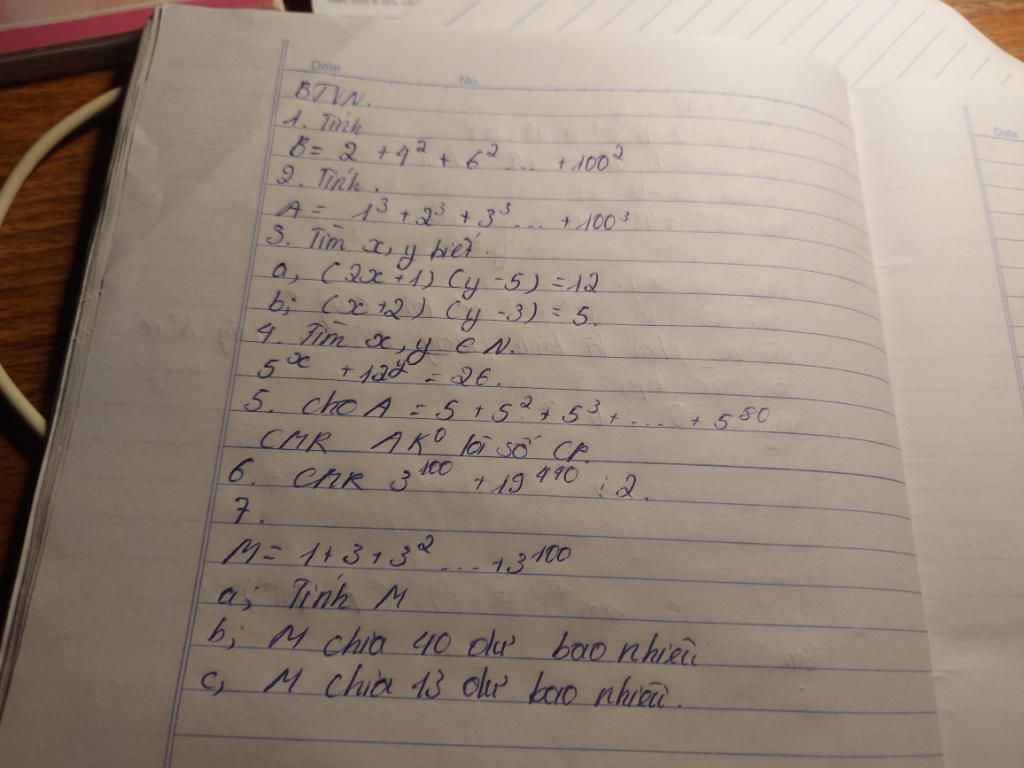 Date No.
BTVN.
1. Tính
B = 2 + 4² + 6² ... + 100²
2. Tính.
A = 1³ + 2³ + 3³ ... + 100³
3. Tìm x, y biết.
a, (2x+1) (y-5) = 12
b; (x+2) (y-3) = 5.
4. Tìm x, y ∈ N.
5ˣ + 12ʸ = 26.
5. cho A = 5 + 5² + 5³ + ... + 5⁸⁰
CMR A K⁰ là số CP.
6. CMR 3¹⁰⁰ + 19⁹⁹⁰ ⋮ 2.
7.
M = 1 + 3 + 3² ... + 3¹⁰⁰
a; Tính M
b; M chia 40 dư bao nhiêu
c, M chia 13 dư bao nhiêu.
Date